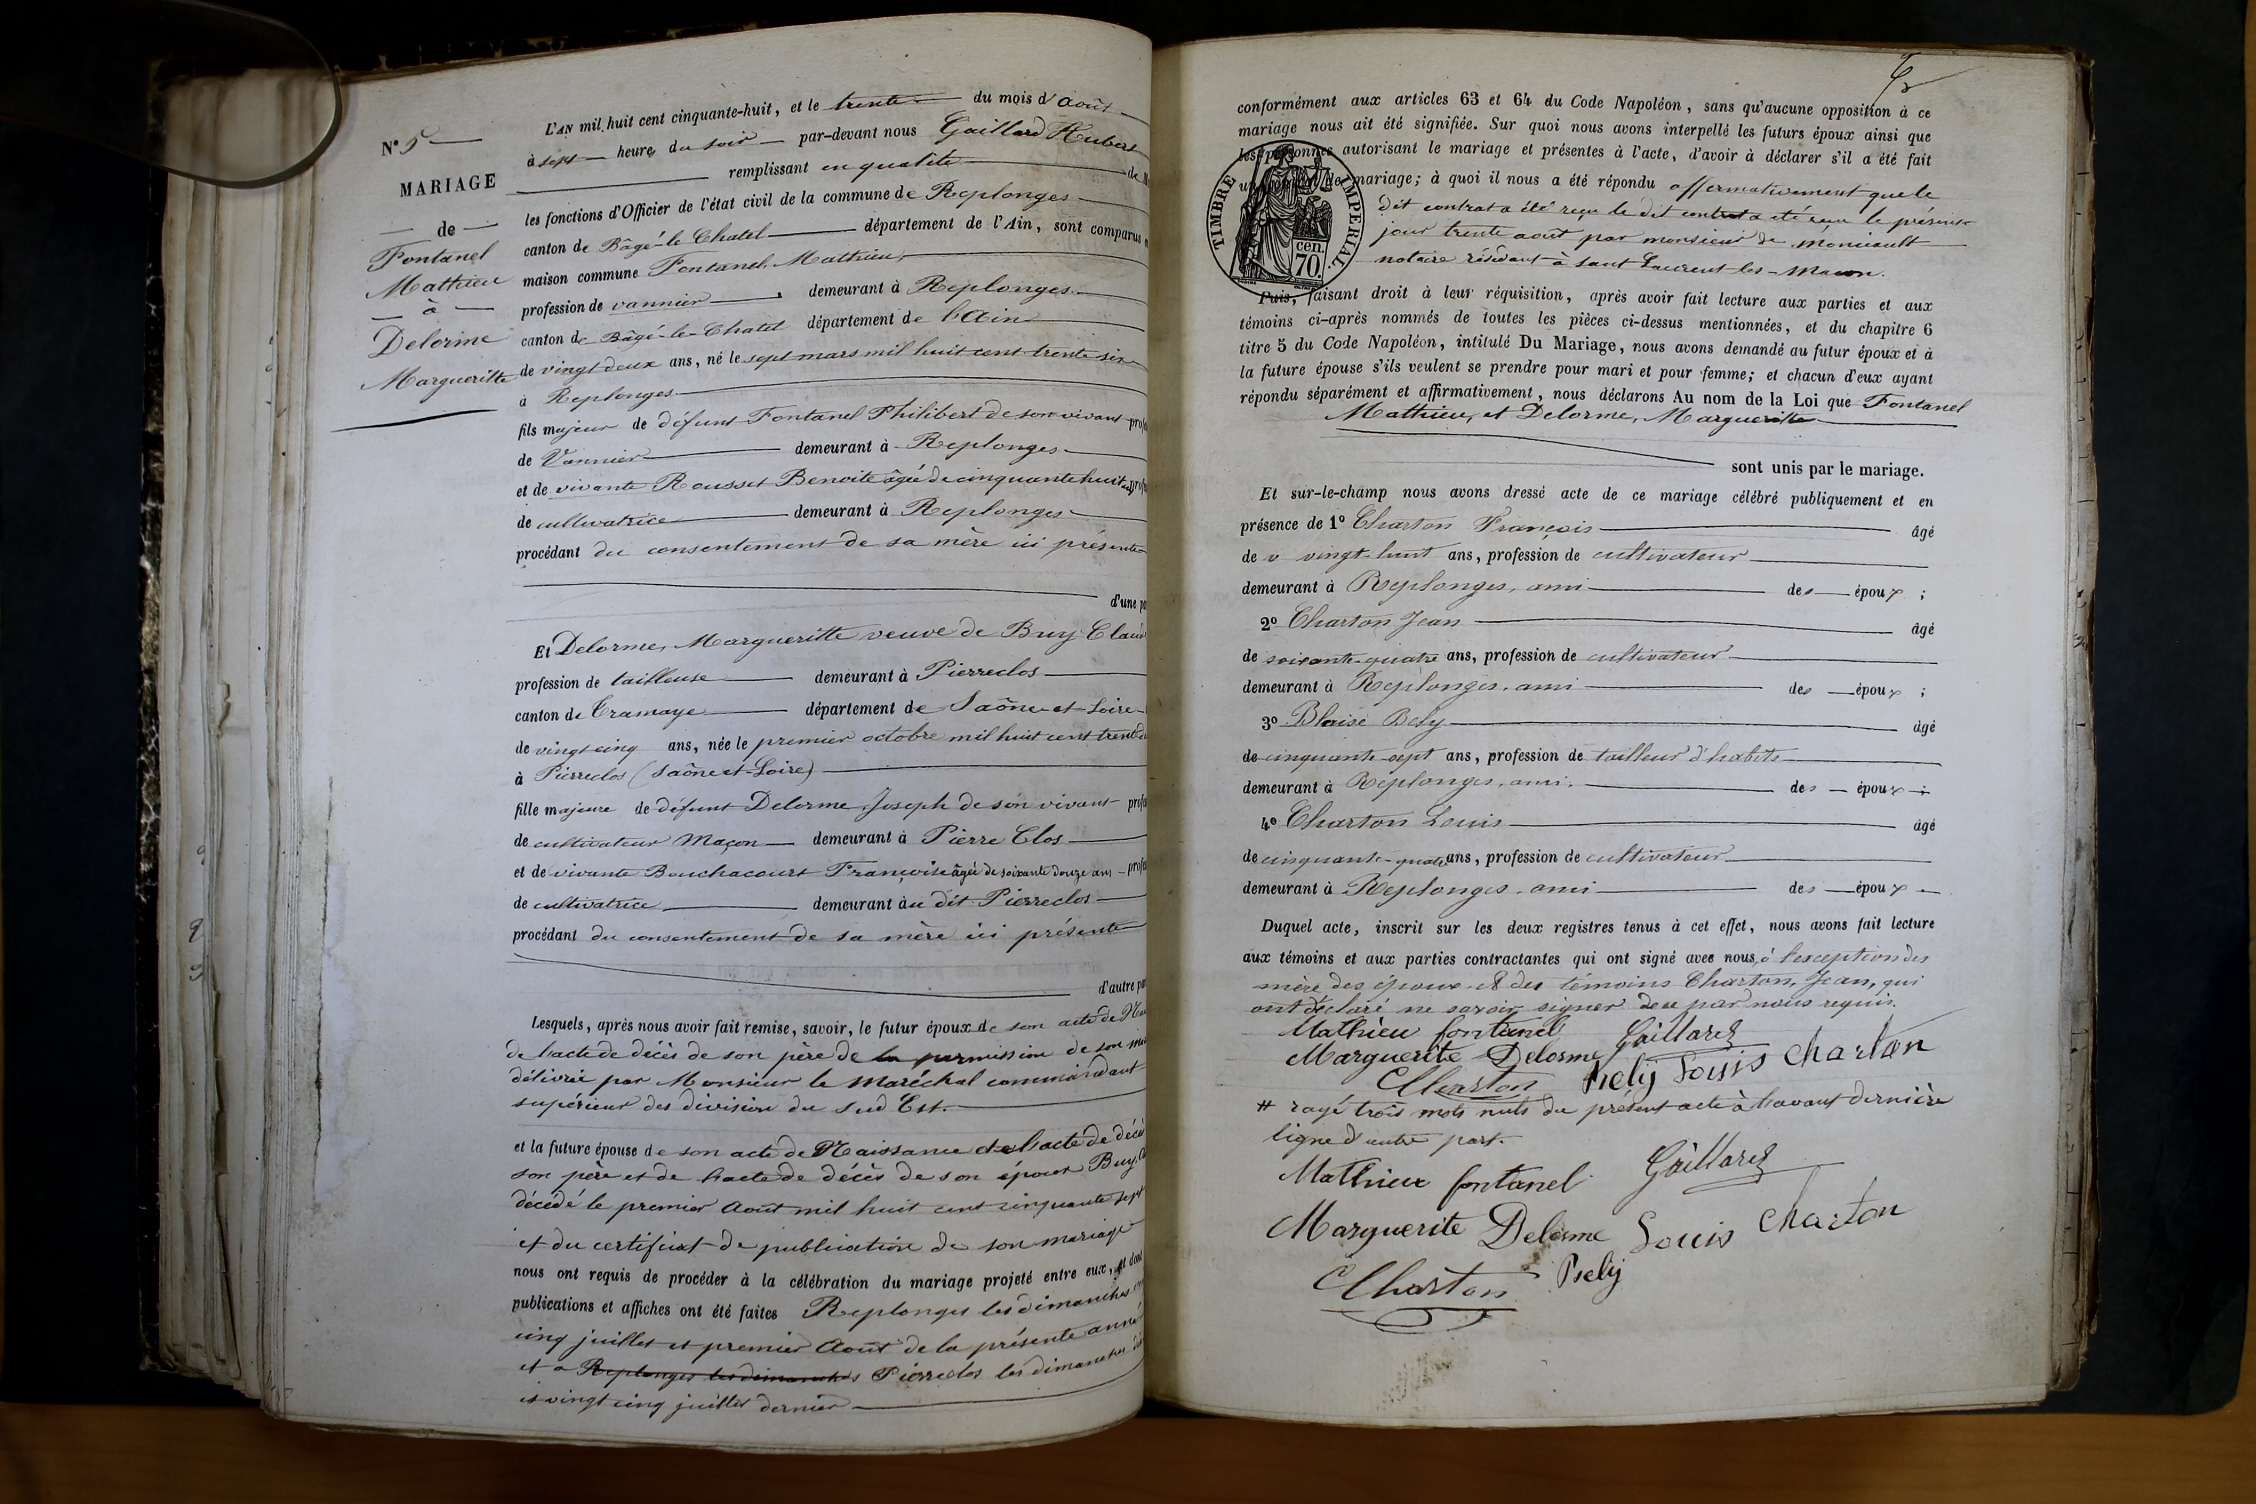 N° 5
MARIAGE
de
Fontanel
Mathieu
à
Delorme
Margueritte
L'AN mil huit cent cinquante-huit, et le trente du mois d'août
à sept heure du soir par-devant nous Gaillard Hubert
remplissant en qualité de
les fonctions d'Officier de l'état civil de la commune de Replonges
canton de Bâgé-le-Chatel département de l'Ain, sont comparus
maison commune Fontanel, Mathieu,
profession de vannier demeurant à Replonges
canton de Bâgé-le-Chatel département de l'Ain
de vingt deux ans, né le sept mars mil huit cent trente six
à Replonges
fils majeur de défunt Fontanel Philibert de son vivant
de Vannier demeurant à Replonges
et de vivante Rousset Benoite âgée de cinquante huit
de cultivatrice demeurant à Replonges
procédant du consentement de sa mère ici présente
d'une
Et Delorme, Margueritte veuve de Buy
profession de tailleuse demeurant à Pierreclos
canton de Tramaye département de Saône-et-Loire
de vingt cinq ans, née le premier octobre mil huit cent
à Pierreclos (Saône et-Loire)
fille majeure de défunt Delorme, Joseph de son vivant
de cultivateur Maçon demeurant à Pierre Clos
et de vivante Bouchacourt Françoise âgée de soixante douze ans
de cultivatrice demeurant au dit Pierreclos
procédant du consentement de sa mère ici présente
d'autre
Lesquels, après nous avoir fait remise, savoir, le futur époux de son acte de
de l'acte de décès de son père de la permission de son
délivrée par Monsieur le Maréchal commandant
supérieur des division du Sud Est.
et la future épouse de son acte de Naissance de l'acte de décès
son père et de l'acte de décès de son époux Buy
décédé le premier Août mil huit cent cinquante sept
et du certificat de publication de son mariage
nous ont requis de procéder à la célébration du mariage projeté entre eux, et dont
publications et affiches ont été faites Replonges les dimanches
cinq juillet et premier Août de la présente année
et a Replonges les dimanches Pierreclos les dimanches
et vingt cinq juillet dernier
conformément aux articles 63 et 64 du Code Napoléon, sans qu'aucune opposition à ce
mariage nous ait été signifiée. Sur quoi nous avons interpellé les futurs époux ainsi que
les personnes autorisant le mariage et présentes à l'acte, d'avoir à déclarer s'il a été fait
un de mariage; à quoi il nous a été répondu affirmativement que le
dit contrat a été reçu le dit contrat a été reçu le présent
jour trente août par monsieur de
notaire résidant à Saint Laurent-les-Macon.
TIMBRE IMPERIAL.
cen.
70.
Puis, faisant droit à leur réquisition, après avoir fait lecture aux parties et aux
témoins ci-après nommés de toutes les pièces ci-dessus mentionnées, et du chapitre 6
titre 5 du Code Napoléon, intitulé Du Mariage, nous avons demandé au futur époux et à
la future épouse s'ils veulent se prendre pour mari et pour femme; et chacun d'eux ayant
répondu séparément et affirmativement, nous déclarons Au nom de la Loi que Fontanel
Mathieu, et Delorme, Margueritte
sont unis par le mariage.
Et sur-le-champ nous avons dressé acte de ce mariage célébré publiquement et en
présence de 1° Charton François âgé
de v vingt-huit ans, profession de cultivateur
demeurant à Replonges, ami des époux ;
2° Charton Jean âgé
de soixante-quatre ans, profession de cultivateur
demeurant à Replonges, ami des époux ;
3° Blaise Bely âgé
de cinquante-sept ans, profession de tailleur d'habits
demeurant à Replonges, ami. des époux ;
4° Charton Louis âgé
de cinquante-quatre ans, profession de cultivateur
demeurant à Replonges, ami des époux
Duquel acte, inscrit sur les deux registres tenus à cet effet, nous avons fait lecture
aux témoins et aux parties contractantes qui ont signé avec nous, à l'exception des
mère des époux et des témoins Charton, Jean, qui
ont déclaré ne savoir signer de ce par nous requis.
Mathieu fontanel Gaillard
Marguerite Delorme
Charton Louis Charton
# rayé trois mots nuls du présent acte à l'avant dernière
ligne d'autre part.
Mathieu fontanel Gaillard
Marguerite Delorme Louis Charton
Charton